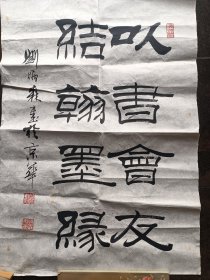 以書會友
結翰墨緣
劉炳森書於京華